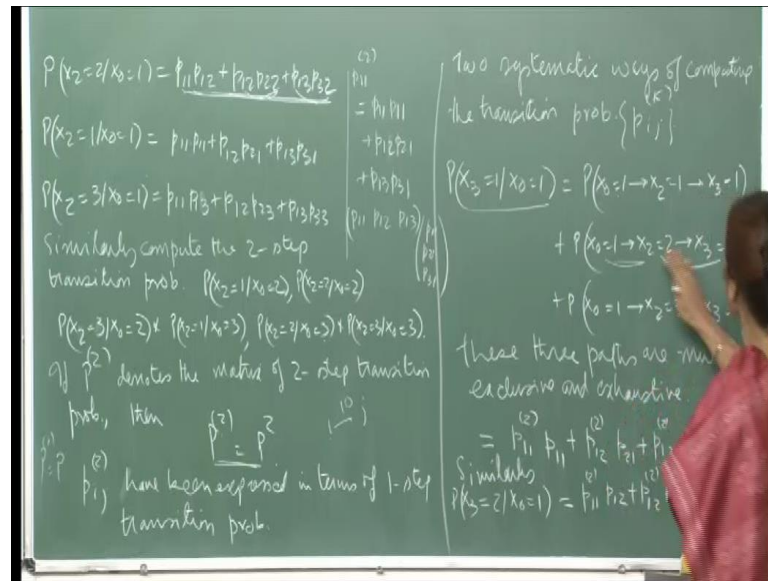 P(x₂=2/x₀=1) = p₁₁p₁₂ + p₁₂p₂₂ + p₁₃p₃₂
P(x₂=1/x₀=1) = p₁₁p₁₁ + p₁₂p₂₁ + p₁₃p₃₁
P(x₂=3/x₀=1) = p₁₁p₁₃ + p₁₂p₂₃ + p₁₃p₃₃
Similarly compute the 2-step
transition prob. P(x₂=1/x₀=2), P(x₂=2/x₀=2)
P(x₂=3/x₀=2) & P(x₂=1/x₀=3), P(x₂=2/x₀=3) & P(x₂=3/x₀=3).
If P⁽²⁾ denotes the matrix of 2-step transition
prob., then
P⁽²⁾ = P²
P⁽¹⁾=P
pᵢⱼ⁽²⁾ have been expressed in terms of 1-step
transition prob.
p₁₁⁽²⁾
= p₁₁p₁₁
+ p₁₂p₂₁
+ p₁₃p₃₁
(p₁₁ p₁₂ p₁₃) (p₁₁
p₂₁
p₃₁)
Two systematic ways of computing
the transition prob. {pᵢⱼ⁽ᵏ⁾}
P(x₃=1/x₀=1) = P(x₀=1→x₂=1→x₃=1)
+ P(x₀=1→x₂=2→x₃=
+ P(x₀=1→x₂= x₃=
These three paths are
exclusive and exhaustive.
= p₁₁⁽²⁾ p₁₁ + p₁₂⁽²⁾ p₂₁ + p₁₃⁽²⁾
Similarly
P(x₃=2/x₀=1) = p₁₁⁽²⁾ p₁₂ + p₁₂⁽²⁾